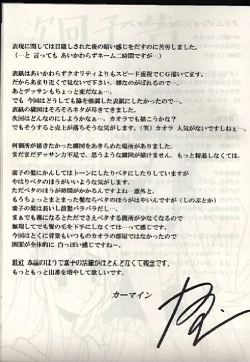 表現に関しては目隠しされた後の暗い感じをだすのに苦労しました。
(…と 言っても あいかわらずネーム二時間ですが…)
表紙はあいかわらずクオリティよりもスピード重視でCG描いてます。
だからあまり近くで見ないで下さい。雑なのがばれるので…
あとデッサンもちょっと変だなぁ…
でも 今回はどうしても脇を強調した表紙にしたかったので…
表紙の構図はそろそろネタが尽きてきました。
次回はどんなのにしようかなぁ…、カオラでも描こうかな？
でもそうすると売上が落ちそうな気がします。(笑) カオラ 人気がないですしねぇ…
何個所か描きたかった構図をあきらめた場所がありました。
まだまだデッサン力不足で、思うような構図が描けません。もっと精進しなくては。
素子の髪にかんしてはトーンにしたりベタにしたりしていますが
やはりベタのほうがいいような気がします。
ただベタのほうが時間がかかるんですよね 意外と。
もうちょっとまとまった髪ならベタのほうがはやいんですが (しのぶとか)
素子の髪は長いし前髪バラバラだし…
まぁでも雑になるとただでさえベタする箇所が少なくなるので
無理してでも髪の毛を下手にしなくては…って感じです。
今回はとくに背景もいつものカオラの部屋ではなかったので
画面が全体的に 白っぽい感じですね～。
最近 本誌のほうで素子の活躍がほとんどなくて残念です。
もっともっと出番を増やして欲しいです。
カーマイン